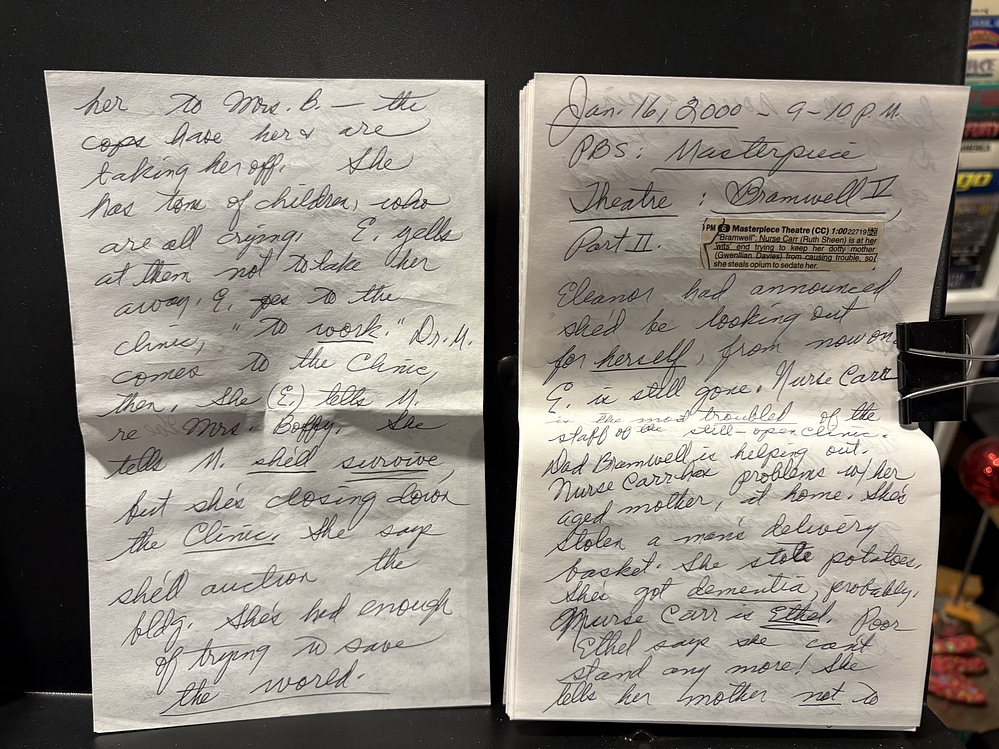 her to Mrs. B. — the
cops have her & are
taking her off. She
has tons of children, who
are all crying. E. yells
at them not to take her
away. E. goes to the
clinic, "to work." Dr. M.
comes to the Clinic,
then. She (E.) tells M.
re Mrs. Boffy. She
tells M. she'll survive,
but she's closing down
the Clinic. She says
she'll auction the
bldg. She's had enough
of trying to save
the world.
Jan. 16, 2000 - 9-10 P.M.
PBS: Masterpiece
Theatre: Bramwell IV,
Part II.
PM 6 Masterpiece Theatre (CC) 1:00 22719
"Bramwell": Nurse Carr (Ruth Sheen) is at her
wits' end trying to keep her dotty mother
(Gwenllian Davies) from causing trouble, so
she steals opium to sedate her.
Eleanor had announced
she'd be looking out
for herself, from now on.
E. is still gone. Nurse Carr
is the most troubled of the
staff of the still-open clinic.
Dad Bramwell is helping out.
Nurse Carr has problems w/ her
aged mother, at home. She's
stolen a man's delivery
basket. She stole potatoes.
She's got dementia, probably.
Nurse Carr is Ethel. Poor
Ethel says she can't
stand any more! She
tells her mother not to